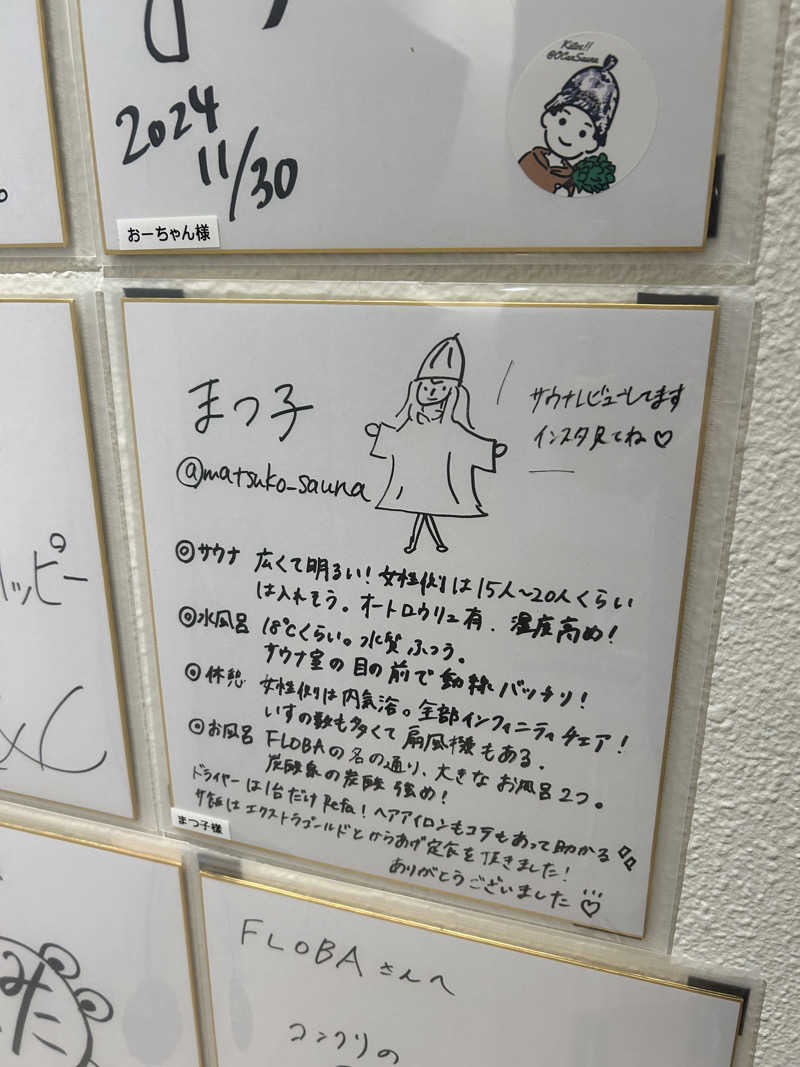 Kitos!!
@OChanSauna
2024
11/30
おーちゃん様
まつ子
@matsuko_sauna
サウナレビューしてます
インスタ見てね♡
◎サウナ 広くて明るい！女性側は15人〜20人くらい
は入れそう。オートロウリュ有、湿度高め！
◎水風呂 18℃くらい。水質ふつう。
サウナ室の目の前で動線バッチリ！
◎休憩 女性側は内気浴。全部インフィニティチェア！
いすの数も多くて扇風機もある。
◎お風呂 FLOBAの名の通り、大きなお風呂2つ。
炭酸泉の炭酸強め！
ドライヤーは1台だけRefa！ヘアアイロンもコテもあって助かる
サ飯はエクストラゴールドとからあげ定食を頂きました！
ありがとうございました♡
まつ子様
ッピー
みた
FLOBAさんへ
コンクリの